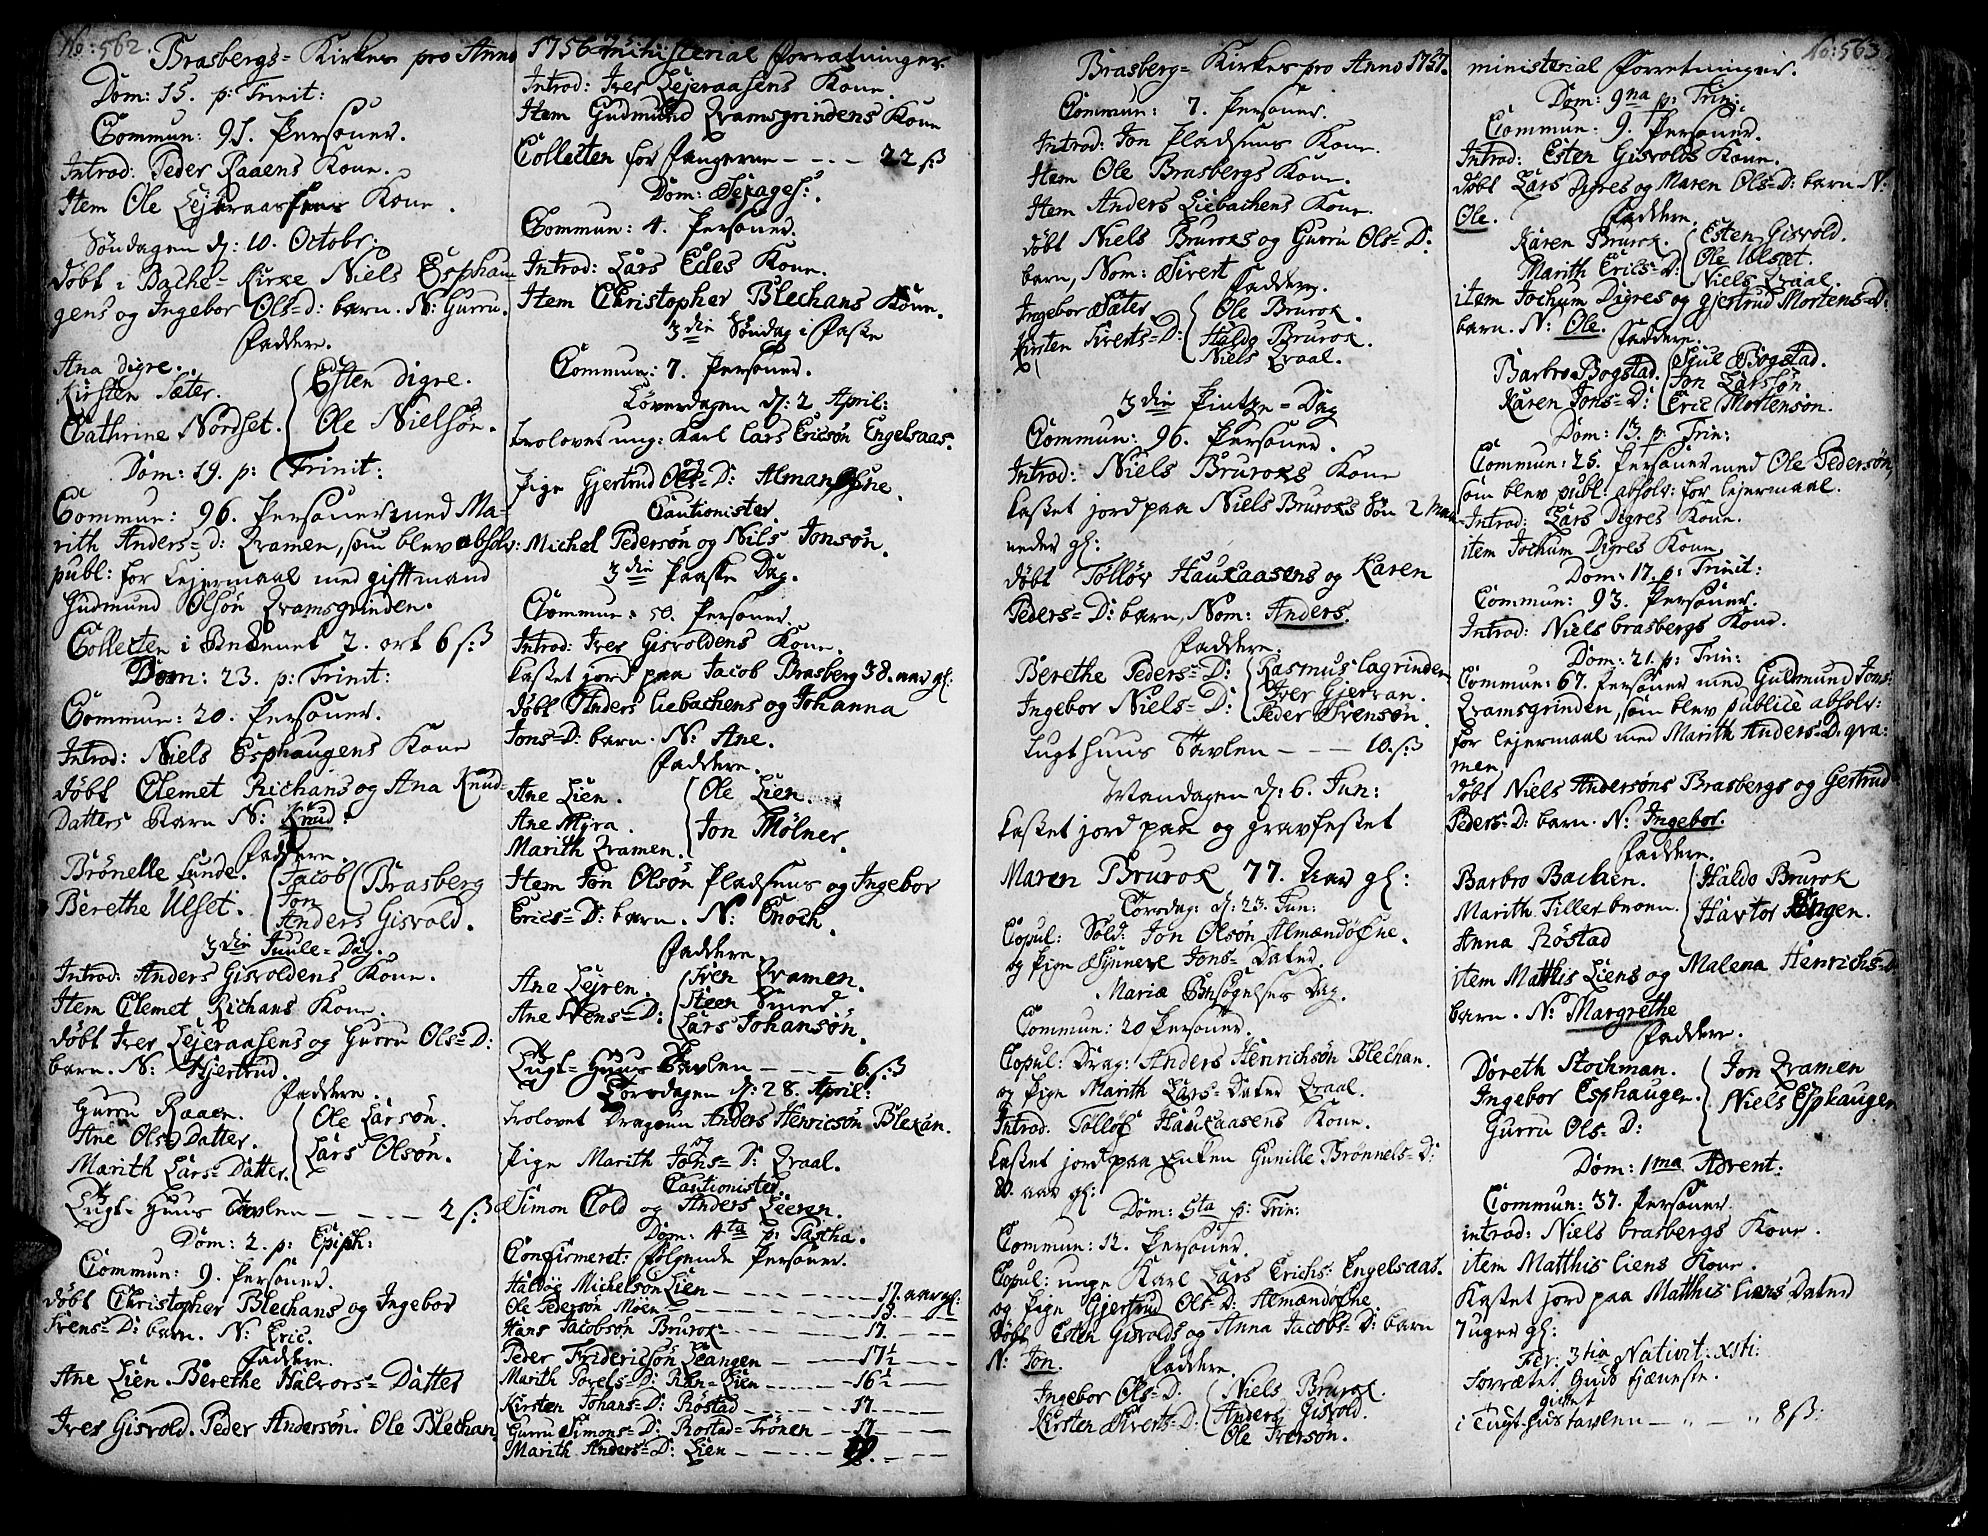 No: 562.
Brasbergs- Kirkes pro Anno 1756 ministerial Forretninger.
Dom: 15. p: Trinit:
Commun: 91. Personer.
Introd: Peder Raaens Kone.
Item Ole Lejeraasens Kone.
Søndagen d: 10. Octobr:
døbt i Bache- Kirke Niels Esphau-
gens og Ingebor Ols-D: barn. N: Gurru.
Faddere.
Ana digre. Esten digre.
Kirsten Sæter.
Cathrine Nordset. Ole Nielsøn.
Dom: 19. p: Trinit:
Commun: 96. Personer med Ma-
rith Anders-D: Qvamen, som blev absolv:
publ: for Lejermaal med gifft mand
Gudmund Olsøn Qvamsgrinden.
Collecten i 2. ort 6 ß
Dom: 23. p: Trinit:
Commun: 20. Personer.
Introd: Niels Esphaugens Kone
døbt Clemet Richans og Ana Knud-
Datters Barn N: Knud.
Faddere.
Brønelle Lunde. Jacob Brasberg
Berethe Ulset. Jon
Anders Gisvold.
3die Juule-Dag.
Introd: Anders Gisvoldens Kone.
Item Clemet Richans Kone.
døbt Iver Lejeraasens og Gurru Ols-D:
barn. N: Gjertrud.
Faddere.
Gurru Raaen. Ole Larsøn.
Ane Ols Datter.
Marith Lars-Datter. Lars Olsøn.
Tugt-Huus Tavlen - - - - 2 ß
Dom: 2. p: Epiph:
Commun: 9. Personer.
døbt Christopher Blechans og Ingebor
Svens-D: barn. N: Eric.
Faddere.
Ane Lien. Berethe Halvors-Datter
Iver Gisvold. Peder Andersøn. Ole Blechan.
Introd: Iver Lejeraasens Kone.
Item Gudmund Qvamsgrindens Kone
Collecten for Fangerne - - - - 22 ß
Dom: Sexages:.
Commun: 4. Personer.
Introd: Lars Edes Kone.
Item Christopher Blechans Kone.
3die Søndag i Faste
Commun: 7. Personer.
Løverdagen d: 2 April:
trolovet ung: Karl Lars Ericsøn Engelsaas.
og
Pige Gjertrud Ols-D: Almandøfne.
Cautionister
Michel Pedersøn og Nils Jonsøn.
3die Paaske Dag.
Commun: 50. Personer.
Introd: Iver Gisvoldens Kone.
kastet jord paa Jacob Brasberg 38. aar gl:
døbt Anders Liebachens og Johanna
Jons-D: barn. N: Ane.
Faddere.
Ane Lien. Ole Lien.
Ane Myra. Jon Mølner.
Marith Qvamen.
Item Jon Olsøn Pladsens og Ingebor
Erics-D: barn. N: Enoch.
Faddere.
Ane Lejren. Iver Qvamen.
Ane Svens-D: Steen Smed
Lars Johansøn.
Tugt-Huus Tavlen - - - - 6 ß
Torsdagen d: 28. April:
trolovet Dragoun Anders Henricsøn Blekan.
og
Pige Marith Jons-D: Qvaal.
Cautionister
Simon Cold og Anders Leeren.
Dom: 4ta p: Pascha.
Confirmeret: følgende Personer.
Haldoe Michelsøn Lien - - - 17. aar gl:
Ole Pedersøn Moen - - - 19. - -
Hans Jacobsøn Brurok - - - 17. - -
Peder Friderichsøn Leangen - - - 17½ - -
Marith Povels-D: Lien - - - 16½ - -
Kirsten Johans-D: Røstad - - - 17. - -
Gurru Simons-D: Rostad-Trønen - - 17 - -
Marith Anders-D: Lien - - - - -
No: 563.
Brasberg- Kirkes pro Anno 1757. ministerial Forretninger.
Commun: 7. Personer.
Introd: Jon Pladsens Kone.
Item Ole Brasbergs Kone.
Item Anders Liebachens Kone.
døbt Niels Bruroks og Gurru Ols-D:
barn, Nom: Sivert
Faddere.
Ingebor Sæter Ole Brurok.
Kirsten Siverts-D: Haldo Brurok.
Niels Qvaal.
3die Pintze-Dag
Commun: 96. Personer.
Introd: Niels Bruroks Kone
kastet jord paa Niels Bruroks Søn 2 maa-
neder gl:
døbt Tølløv Haukaasens og Karen
Peders-D: barn, Nom: Anders.
Faddere.
Berethe Peders-D: Rasmus lagrinden
Ingebor Niels-D: Iver Gjervan.
Peder Svensøn.
Tugthuus Tavlen - - - 10. ß
Mandagen d: 6. Jun:
kastet jord paa og gravfestet
Maren Brurok 77. Aar gl:
Torsdag: d: 23. Jun:
Copul: Sold: Jon Olsøn Almændøfne.
og Pige Synnere Jons-Dater.
Mariæ Besøgelses Dag.
Commun: 20 Personer.
Copul: Drag: Anders Henrichsøn Blechan.
og Pige Marith Lars-Dater Qvaal.
Introd. Tølløf Haukaasens Kone.
kastet jord paa Enken Gunille Brønnels-D:
80. aar gl:
Dom: 5ta p: Trin:
Commun: 12. Personer.
Copul: unge Karl Lars Erichs: Engelsaas.
og Pige Gjertrud Ols-D: Almændøfne
døbt Esten Gisvolds og Anna Jacobs-D: barn
N: Jon. Faddere.
Ingebor Ols-D. Niels Brurok.
Kirsten Siverts-D: Anders Gisvold.
Ole Iversøn.
Dom: 9na p: Trin:
Commun: 9. Personer.
Introd: Esten Gisvolds Kone.
døbt Lars Digres og Maren Ols-D: barn N:
Ole. Faddere.
Karen Brurok. Esten Gisvold.
Marith Erics-D: Ole Ulset.
Niels Qvaal.
item Jochum Digres og Gjertrud Mortens-D:
barn. N: Ole. Faddere.
Barbro Bogstad. Sjul Bogstad.
Karen Jons-D: Jon Larsøn
Eric Mortensøn.
Dom: 13. p: Trin:
Commun: 25. Personer med Ole Pedersøn,
som blev publ: absolv: for lejermaal.
Introd: Lars Digres Kone.
item Jochum Digres Kone
Dom: 17. p: Trinit:
Commun: 93. Personer.
Introd: Niels brasbergs Kone.
Dom: 21. p: Trin:
Commun: 67. Personer med Gudmund Jons:
Qvamsgrinden, som blev publicè absolv:
for lejermaal med Marith Anders-D: qva-
men
døbt Niels Andersøns Brasbergs og Gertrud
Peders-D: barn. N: Ingebor.
Faddere.
Barbro Bachen. Haldo Brurok
Marith Tillerbroen. Havtor Engen.
Anna Røstad
item Matthis Liens og Malena Henrichs-D:
barn. N: Margrethe
Faddere.
Doreth Stochman. Jon Qvamen
Ingebor Esphaugen. Niels Esphaugen
Gurru Ols-D:
Dom: 1ma Advent:
Commun: 37. Personer
introd: Niels brasbergs Kone.
item Matthis Liens Kone.
Kastet jord paa Matthis liens Dater
7 uger gl:
Fer: 3tia Nativit: xsti:
forrættet Guds tjæneste.
givet
i Tugthustavlen - " - " 8 ß.